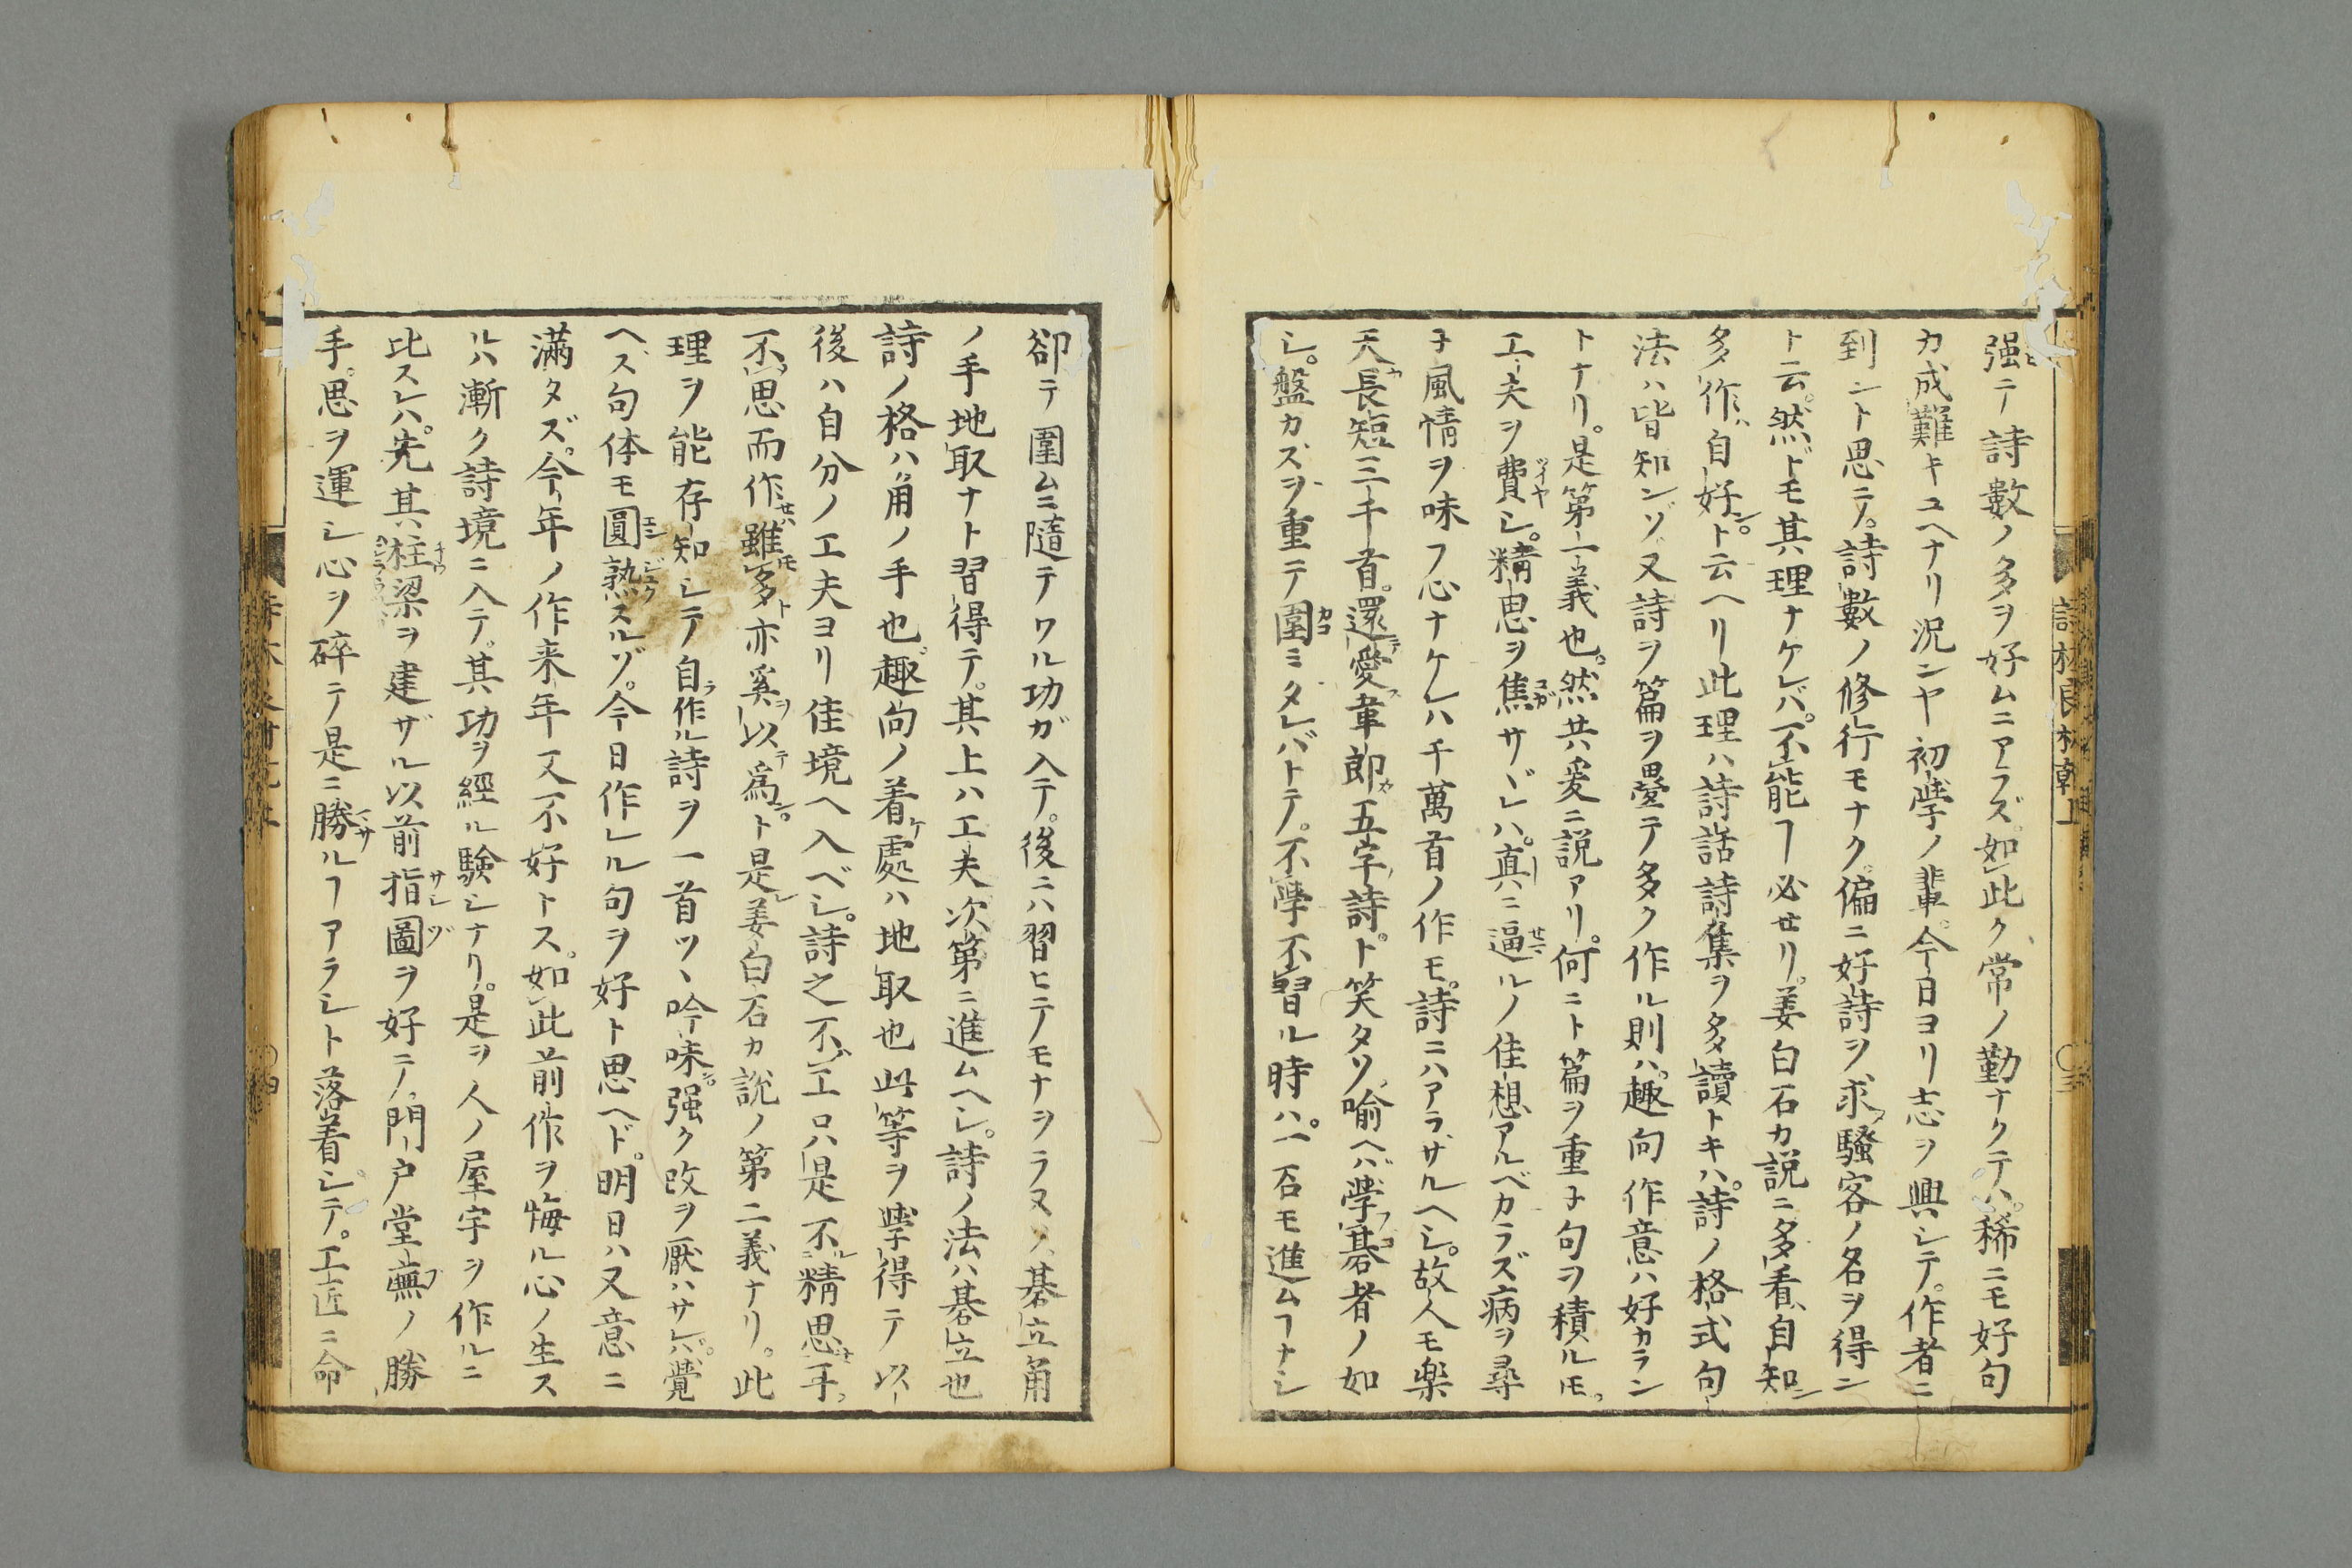 强ニテ詩數ノ多ヲ好ムニアラズ如此ク常ノ勤ナクテハ稀ニモ好句
カ成難キユヘナリ況ンヤ初學ノ輩今日ヨリ志ヲ興シテ作者ニ
到ント思ニテ詩數ノ修行モナク偏ニ好詩ヲ求メ騷客ノ名ヲ得ン
ト云然ドモ其理ナケレバ不能ヿ必セリ姜白石カ説ニ多看自知
多作自好ト云ヘリ此理ハ詩話詩集ヲ多讀トキハ詩ノ格式句
法ハ皆知ンゾ又詩ヲ篇ヲ疊テ多ク作ル則ハ趣向作意ハ好カラン
トナリ是第一義也然共爰ニ説アリ何ニト篇ヲ重子句ヲ積ルモ
工夫ヲ費シ精思ヲ焦サヾレハ真ニ逼ルノ佳想アルベカラズ病ヲ尋
子風情ヲ味フ心ナケレハ千萬首ノ作モ詩ニハアラザルヘシ故人モ楽
天長短三千首還愛韋郎五字詩ト笑タリ喩ヘハ學碁者ノ如
シ盤カズヲ重テ圍ミタレバトテ不學不習ル時ハ一石モ進ムヿナシ
詩林良材乾上
〇三
卻テ圍ムニ隨テワル功ガ入テ後ニハ習ヒテモナヲラヌソ碁立角
ノ手地取ナト習得テ其上ハ工夫次第ニ進ムヘシ詩ノ法ハ碁立也
詩ノ格ハ角ノ手也趣向ノ着處ハ地取也此等ヲ學得テ以
後ハ自分ノ工夫ヨリ佳境ヘ入ベシ詩之不工只是不精思耳
不思而作雖多亦奚以爲ト是姜白石カ説ノ第二義ナリ此
理ヲ能存知シテ自作ル詩ヲ一首ツヽ吟味强ク改ヲ厭ハサレハ覺
ヘズ句体モ圓熟スルゾ今日作レル句ヲ好ト思ヘド明日ハ又意ニ
滿タズ今年ノ作来年又不好トス如此前作ヲ悔ル心ノ生ス
ルハ漸ク詩境ニ入テ其功ヲ經ル驗シナリ是ヲ人ノ屋宇ヲ作ルニ
比スレハ先其柱梁ヲ建ザル以前指圖ヲ好ニテ門戸堂廡ノ勝
手思ヲ運シ心ヲ碎テ是ニ勝ルヿアラシト落着シテ工匠ニ命
〇四